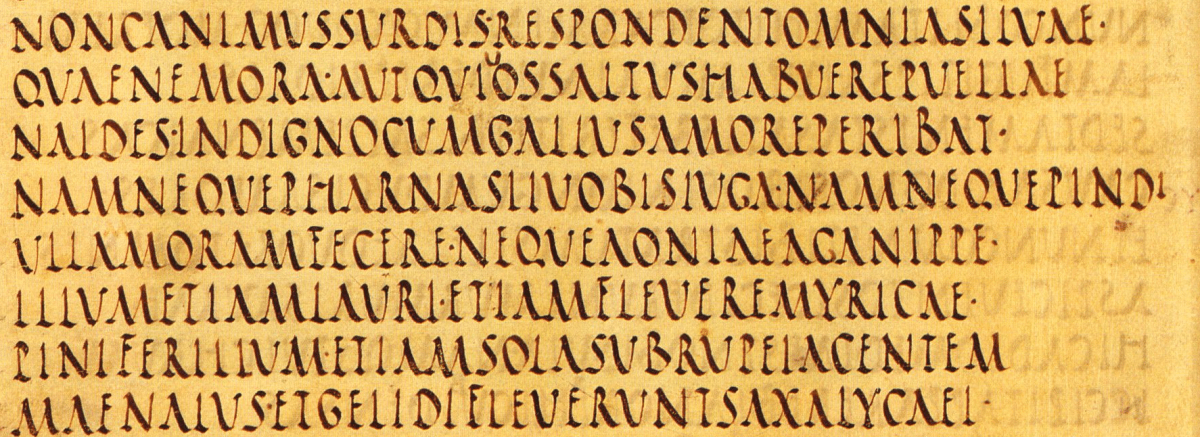 NONCANIMUSSURDIS·RESPONDENTOMNIASILVAE·
QVAENEMORA·AUTQVIVOSSALTUSHABUEREPUELLAE
NAIDES·INDIGNOCUMGALLUSAMOREPERIBAT·
NAMNEQUEPHARNASIIVOBISIUGA·NAMNEQUEPINDI
VLLAMORAMFECERE·NEQUEAONIAEAGANIPPE·
ILLVMETIAMLAURI·ETIAMFLEVEREMYRICAE·
PINIFERILLUM·ETIAMSOLASUBRUPEIACENTEM
MAENALUS·ETGELIDIFLEVERUNTSAXALYCAEI·